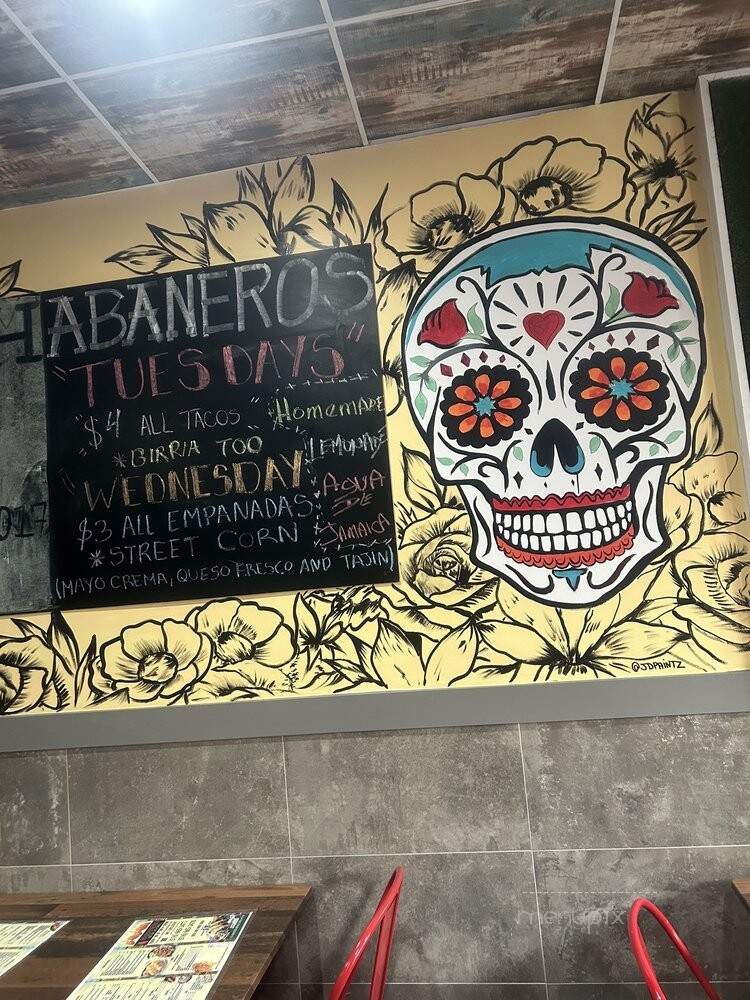 HABANEROS
"TUESDAYS"
"$4 ALL TACOS"
*BIRRIA TOO
WEDNESDAY
$3 ALL EMPANADAS
*STREET CORN
(MAYO CREMA, QUESO FRESCO AND TAJIN)
Homemade
LEMONADE
AGUA
DE
JAMAICA
@JDPAINTZ
menupix